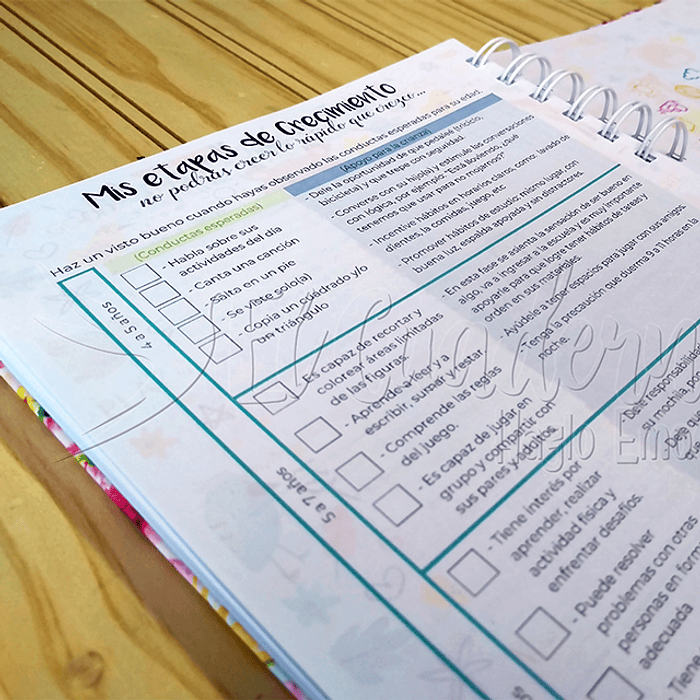 Mis etapas de Crecimiento
no podrás creer lo rápido que crezco...
Haz un visto bueno cuando hayas observado las conductas esperadas para su edad.
(Conductas esperadas)
(Apoyo para la crianza)
4 a 5 años
- Habla sobre sus
actividades del día
- Canta una canción
- Salta en un pie
- Se viste solo(a)
- Copia un cuadrado y/o
un triángulo
- Dele la oportunidad de que pedaleé (triciclo,
bicicleta), y que trepe con seguridad.
- Converse con su hijo(a) y estimule las conversaciones
con lógica, por ejemplo: "Está lloviendo, ¿qué
tenemos que usar para no mojarnos?
- Incentive hábitos en horarios claros, como: lavado de
dientes, la comidas, juego, etc.
- Promover hábitos de estudio: mismo lugar con
buena luz, espalda apoyada y sin distractores.
5 a 7 años
- Es capaz de recortar y
colorear áreas limitadas
de las figuras.
- Aprende a leer y a
escribir, sumar y restar.
- Comprende las reglas
del juego.
- Es capaz de jugar en
grupo y compartir con
sus pares y adultos.
- En esta fase se asienta la sensación de ser bueno en
algo, va a ingresar a la escuela y es muy importante
apoyarle para que logre tener hábitos de tareas y
orden en sus materiales.
- Ayúdele a tener espacios para jugar con sus amigos.
- Tenga la precaución que duerma 9 a 11 horas en
noche.
- Tiene interés por
aprender, realizar
actividad física y
enfrentar desafíos.
- Puede resolver
problemas con otras
personas en
adecuada
- Tiene
responsabilidad
su mochila, por
Haglo